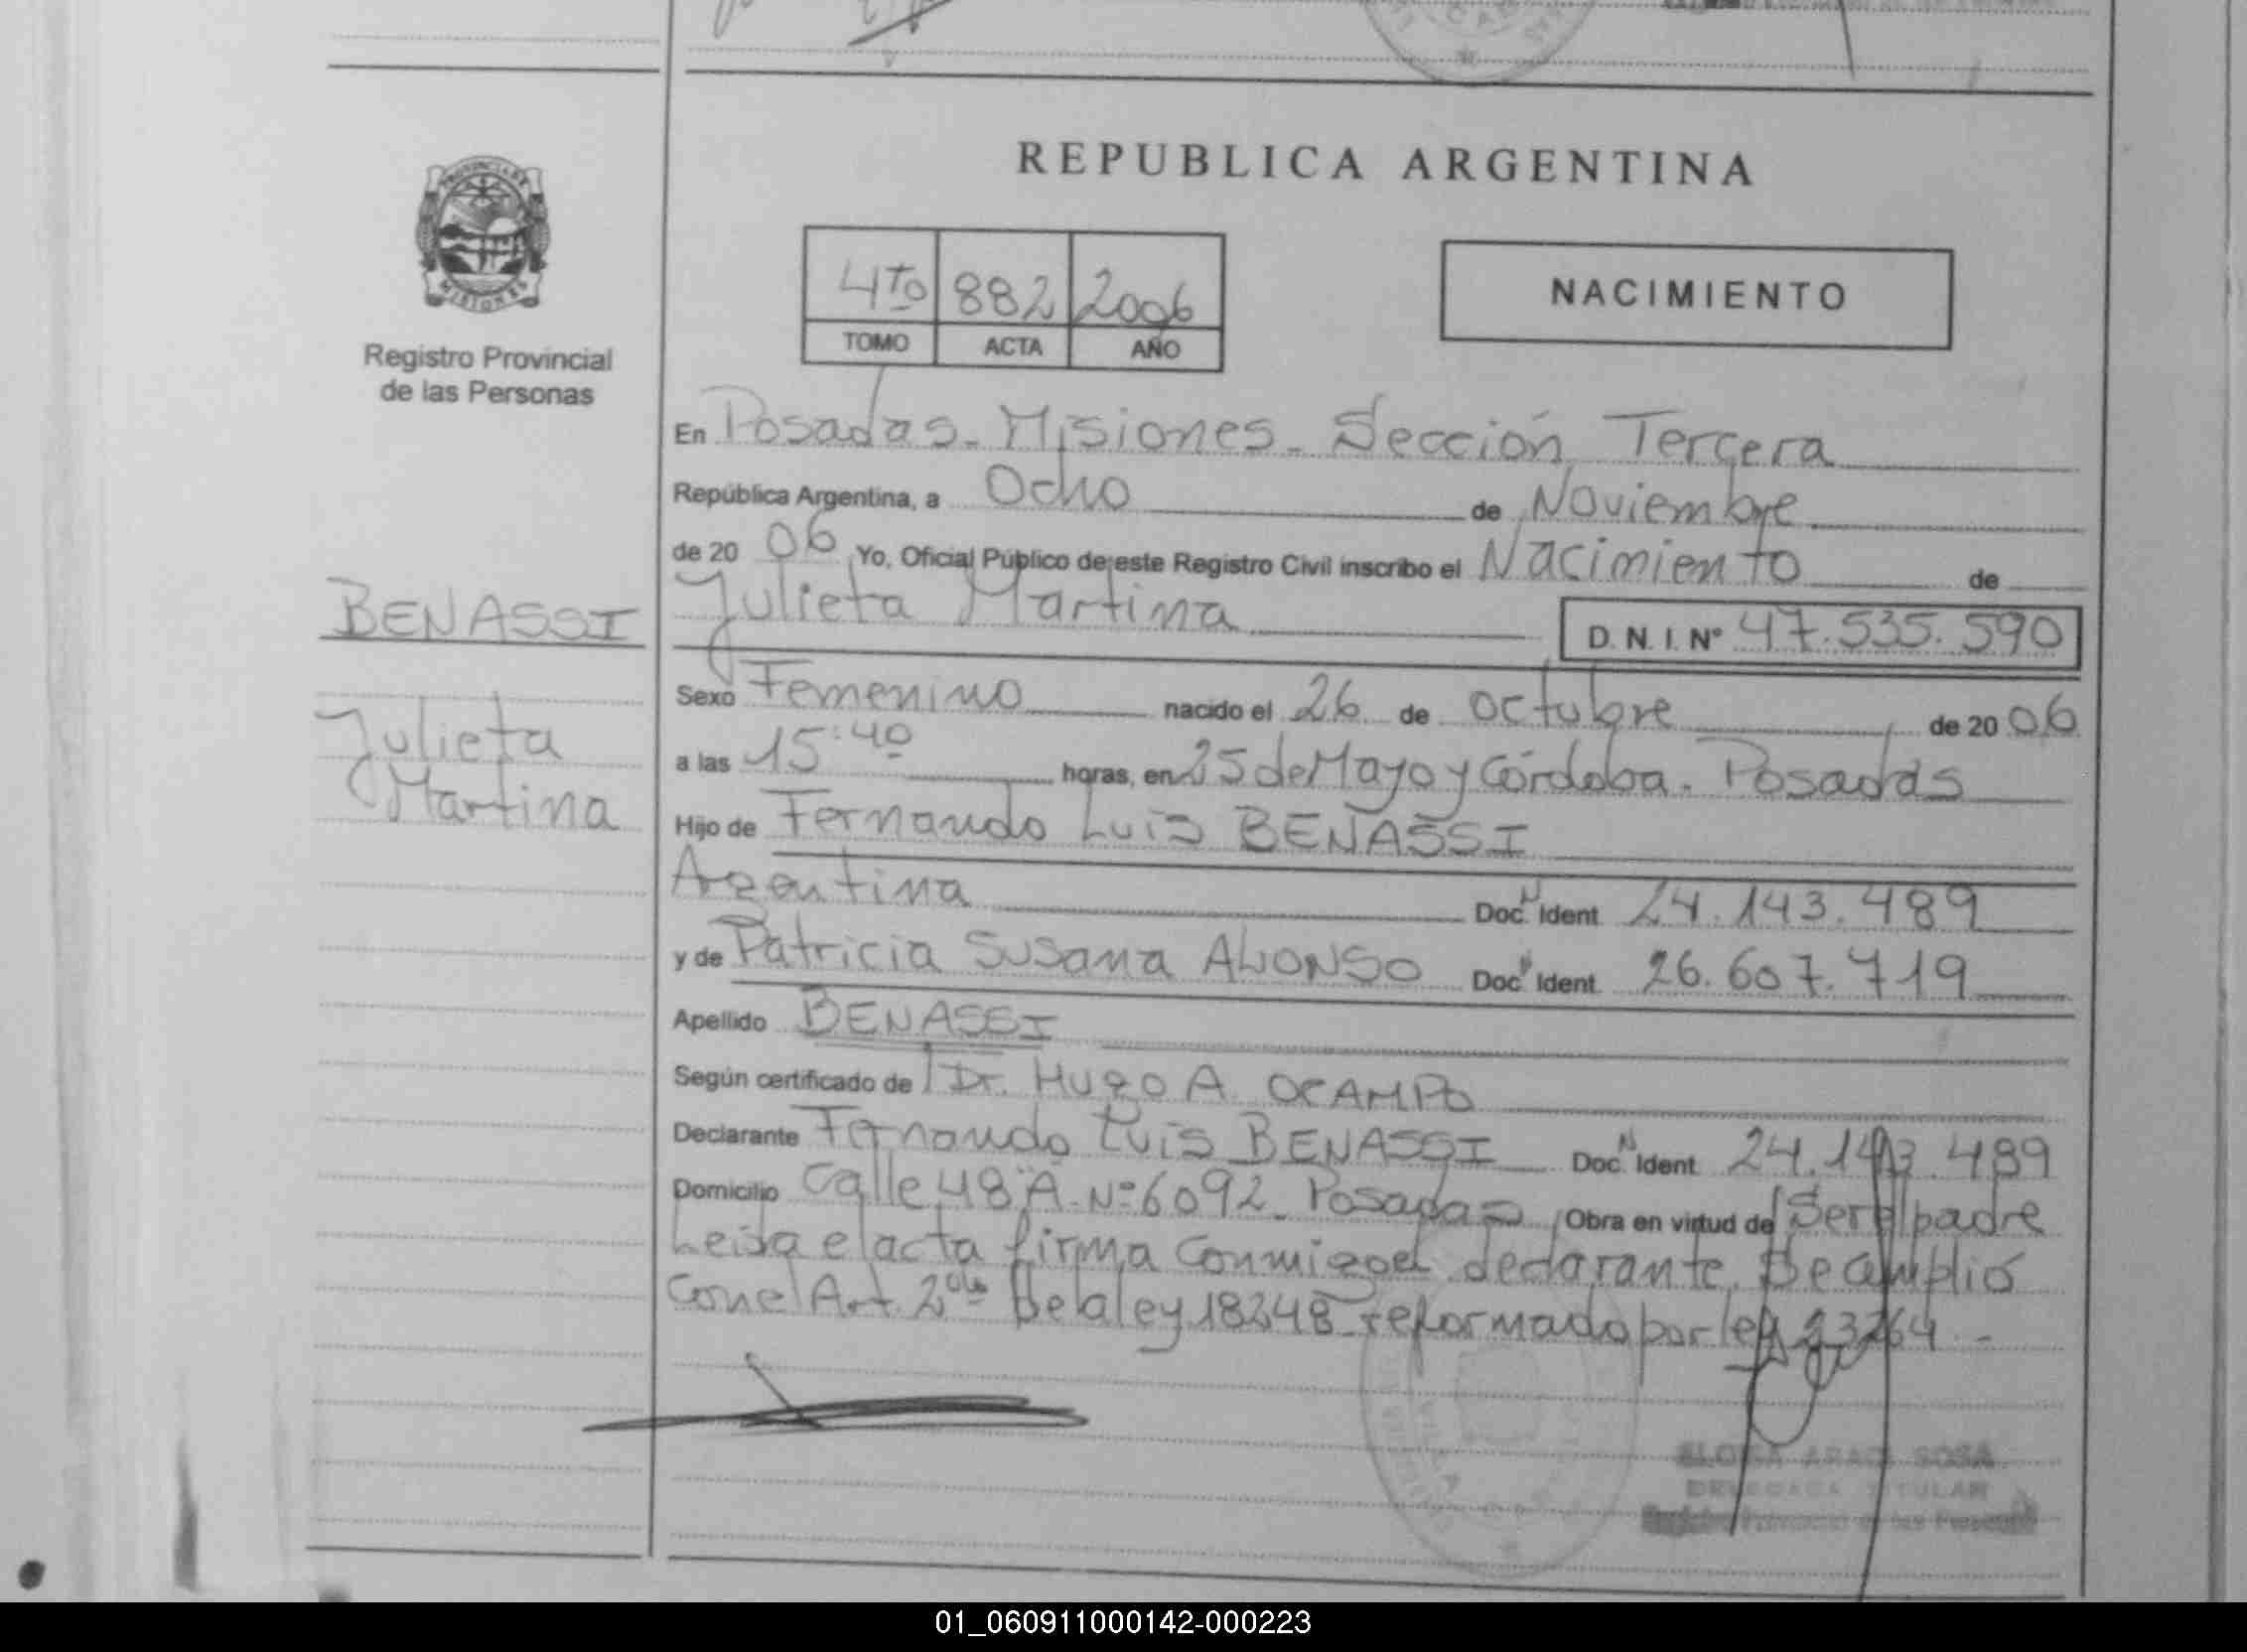 REPUBLICA ARGENTINA
4TO 882 2006
TOMO ACTA AÑO
NACIMIENTO
PROVINCIA DE
MISIONES
Registro Provincial
de las Personas
BENASSI
Julieta
Martina
En Posadas - Misiones - Sección Tercera
República Argentina, a Ocho de Noviembre
de 20 06 Yo, Oficial Público de este Registro Civil inscribo el Nacimiento de
Julieta Martina D. N. I. Nº 47.535.590
Sexo Femenino nacido el 26 de octubre de 20 06
a las 15:40 horas, en 25 de Mayo y Córdoba. Posadas
Hijo de Fernando Luis BENASSI
Argentina Doc. N Ident. 24.143.489
y de Patricia Susana ALONSO Doc. N Ident. 26.607.719
Apellido BENASSI
Según certificado de Dr. Hugo A. OCAMPO
Declarante Fernando Luis BENASSI Doc. N Ident. 24.143.489
Domicilio Calle 48 "A" Nº 6092 - Posadas Obra en virtud de Ser el padre
Leida el acta firma conmigo el declarante. Se cumplió
con el Art. 2do de la ley 18248 reformado por ley 23264 -
SOSA
TITULAR
01_060911000142-000223